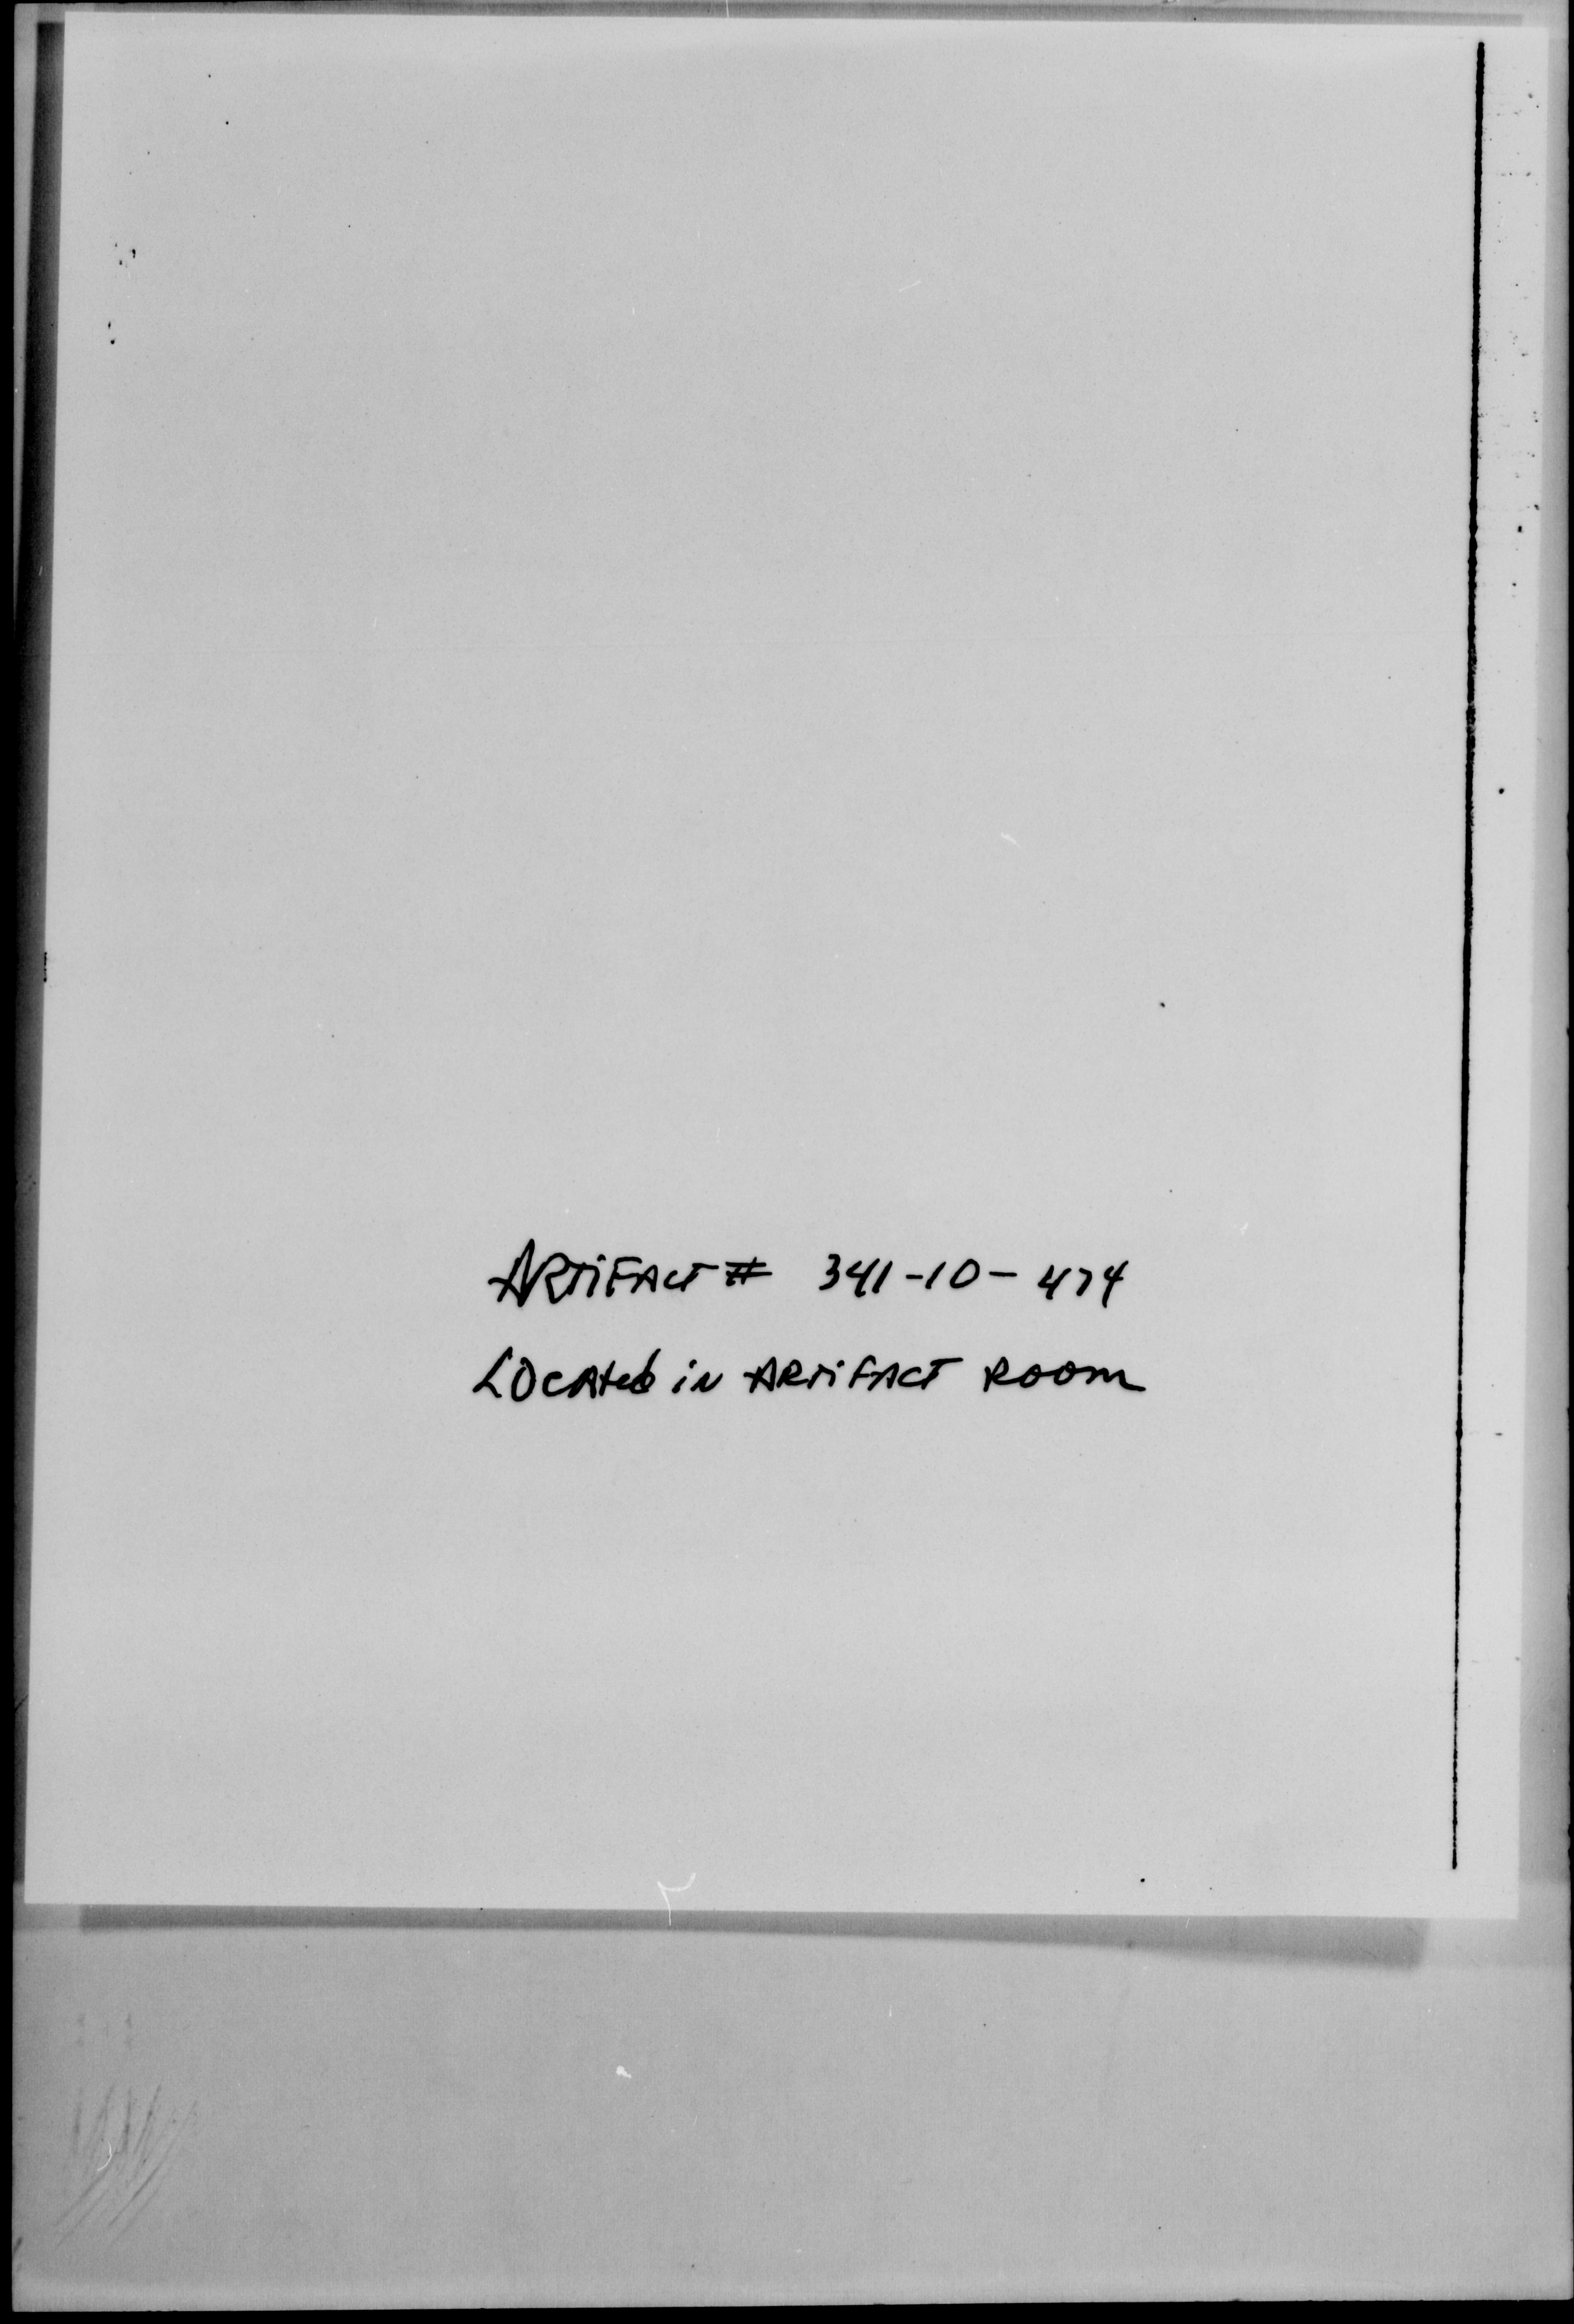 ARTiFACT # 341-10-474
LOCAted iN ARTiFACT ROOM